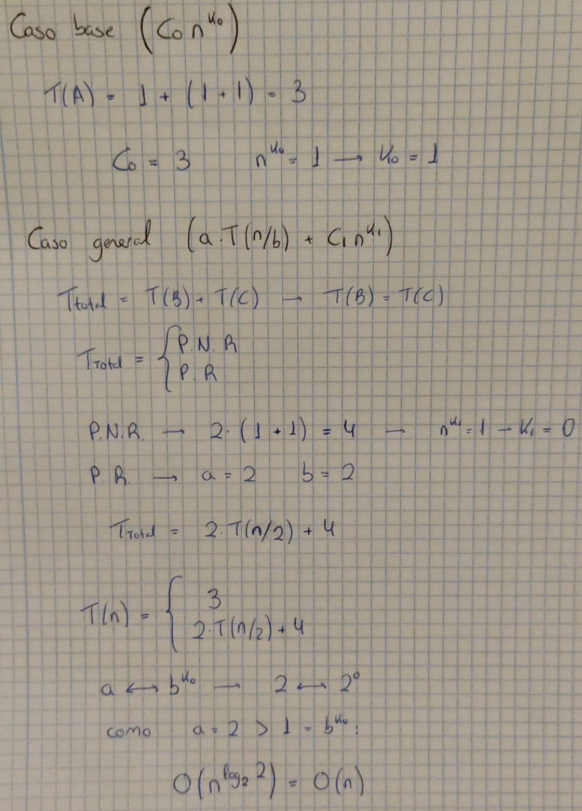 Caso base (C₀ n^k₀)
T(A) = 1 + (1 + 1) = 3
C₀ = 3 n^k₀ = 1 → k₀ = 1
Caso general (a·T(n/b) + C₁ n^k₁)
Ttotal = T(B) + T(C) → T(B) = T(C)
TTotal = { P.N.R
P.R
P.N.R. → 2·(1 + 1) = 4 → n^k₁ = 1 → k₁ = 0
P.R. → a = 2 b = 2
TTotal = 2·T(n/2) + 4
T(n) = { 3
2·T(n/2) + 4
a ↔ b^k₀ → 2 ↔ 2⁰
como a = 2 > 1 = b^k₀:
O(n^log₂ 2) = O(n)